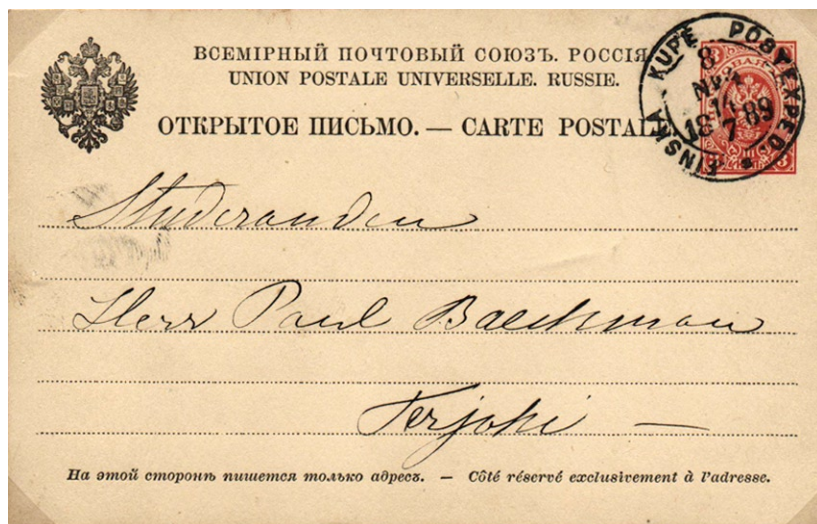 ВСЕМІРНЫЙ ПОЧТОВЫЙ СОЮЗЪ. РОССІЯ
UNION POSTALE UNIVERSELLE. RUSSIE.
ОТКРЫТОЕ ПИСЬМО. — CARTE POSTALE.
FINSKA KUPÉ POSTEXPED.
8
No 4
14
18 7 89
3 3
Studeranden
Herr Paul Baeckman
Terjoki —
На этой сторонѣ пишется только адресъ. — Côté réservé exclusivement à l'adresse.